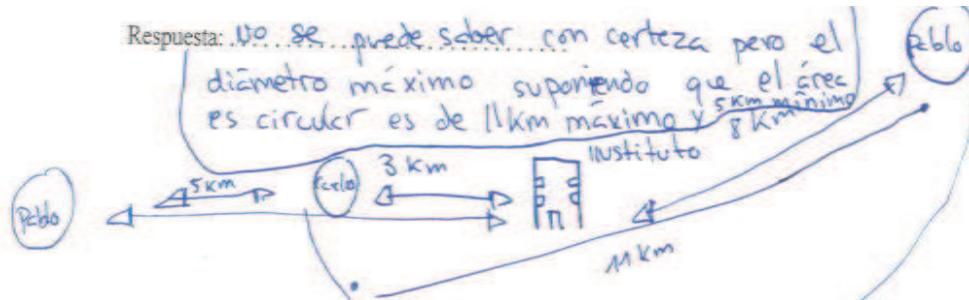 Respuesta: No se puede saber con certeza pero el
diámetro máximo suponiendo que el área
es circular es de 11km máximo y 5km mínimo
Pablo
8 Km
instituto
3 Km
5 Km
Pablo
11 Km